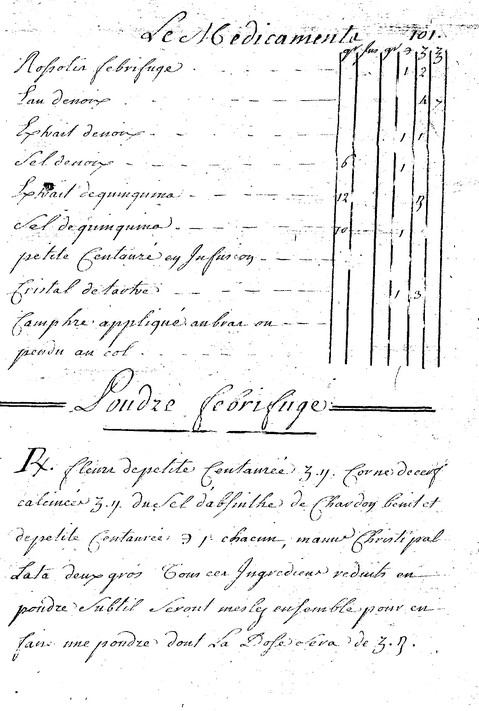 Le Medicaments 101.
gr fus gr ℈ ʒ ℥
Rossolis febrifuge 1 2
Eau denoix 4 7
Extrait denoix 1 1
Sel denoix 6 1
Extrait dequinquina 12 ß
Sel dequinquina 10 1
petite Centauré en Infusion
Cristal detartre 1 3
Camphre appliqué aubras ou
pendu au col.
Poudre febrifuge
Rx. fleurs depetite Centaurée ʒ.ij. Corne decerf
calcinée ʒ.ij. dusel d'absinthe de Chardon benit et
depetite Centaurée ℈ 1 chacun, manus Christi per
Lata deux gros Tous ces Ingrediens reduits en
poudre Subtil Seront meslez ensemble pour en
faire une poudre dont La Dose Sera de ʒ.ß.